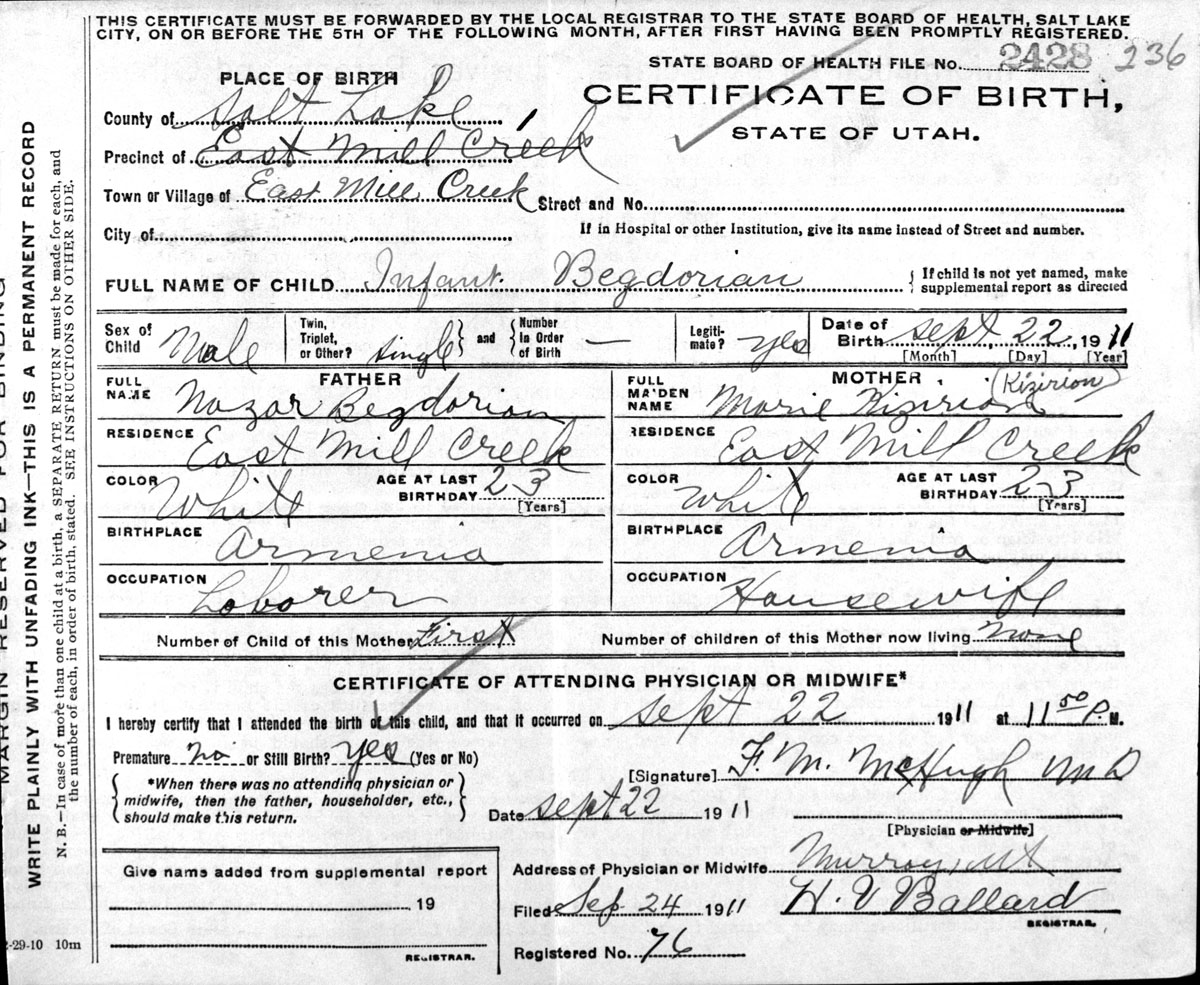 THIS CERTIFICATE MUST BE FORWARDED BY THE LOCAL REGISTRAR TO THE STATE BOARD OF HEALTH, SALT LAKE
CITY, ON OR BEFORE THE 5TH OF THE FOLLOWING MONTH, AFTER FIRST HAVING BEEN PROMPTLY REGISTERED.
STATE BOARD OF HEALTH FILE No. 2428 236
PLACE OF BIRTH
CERTIFICATE OF BIRTH,
STATE OF UTAH.
County of Salt Lake
Precinct of East Mill Creek
Town or Village of East Mill Creek Street and No.
City of If in Hospital or other Institution, give its name instead of Street and number.
FULL NAME OF CHILD Infant Begdorian { If child is not yet named, make
supplemental report as directed
Sex of Child Male Twin, Triplet, or Other? single } and { Number in Order of Birth — Legiti-mate? yes Date of Birth sept 22, 1911
[Month] [Day] [Year]
FATHER MOTHER (Kizirion)
FULL NAME Nazar Begdorian FULL MAIDEN NAME Marie Kizirion
RESIDENCE East Mill Creek RESIDENCE East Mill Creek
COLOR White AGE AT LAST BIRTHDAY 23 [Years] COLOR White AGE AT LAST BIRTHDAY 23 [Years]
BIRTHPLACE Armenia BIRTHPLACE Armenia
OCCUPATION Laborer OCCUPATION Housewife
Number of Child of this Mother First Number of children of this Mother now living None
CERTIFICATE OF ATTENDING PHYSICIAN OR MIDWIFE*
I hereby certify that I attended the birth of this child, and that it occurred on sept 22 1911 at 11 50 P. M.
Premature No or Still Birth? yes (Yes or No)
[Signature] F. M. McHugh MD
{ *When there was no attending physician or
midwife, then the father, householder, etc.,
should make this return. }
Date sept 22 1911
[Physician or Midwife]
Give name added from supplemental report
, 19
REGISTRAR.
Address of Physician or Midwife Murray, Ut
Filed Sep 24 1911 H. V Ballard
REGISTRAR.
Registered No. 76
-29-10 10m
MARGIN RESERVED FOR BINDING
WRITE PLAINLY WITH UNFADING INK—THIS IS A PERMANENT RECORD
N. B.—In case of more than one child at a birth, a SEPARATE RETURN must be made for each, and
the number of each, in order of birth, stated. SEE INSTRUCTIONS ON OTHER SIDE.